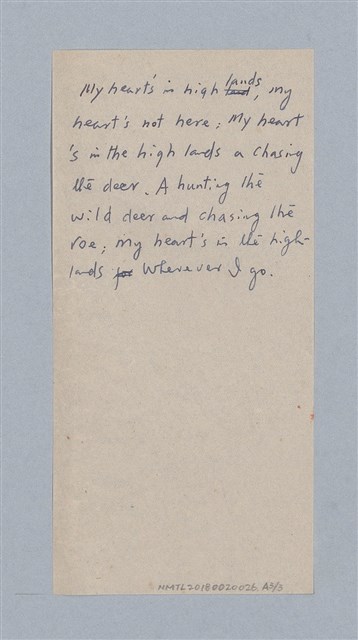 My heart's in high lands, my
heart's not here; My heart
's in the high lands a chasing
the deer. A hunting the
wild deer and chasing the
roe; my heart's in the high-
lands Wherever I go.
NMTL20180020026 A3/3